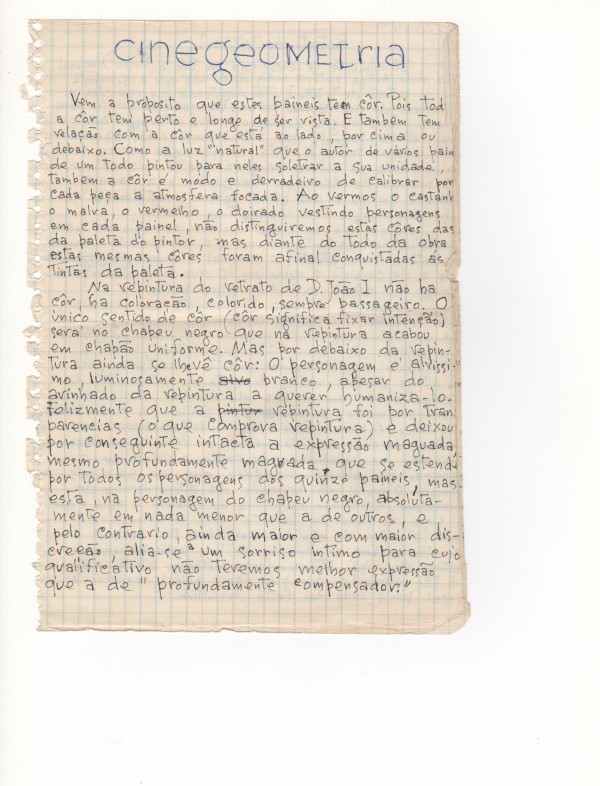 cinegeOMETria
Vem a proposito que estes paineis tem côr. Pois tod
a côr tem perto e longe de ser vista. E tambem tem
relação com a côr que está ao lado, por cima ou
debaixo. Como a luz "natural" que o autor de vários pain
de um todo pintou para neles soletrar a sua unidade,
tambem a côr é modo e derradeiro de calibrar por
cada peça a atmosfera focada. Ao vermos o castanh
o malva, o vermelho, o doirado vestindo personagens
em cada painel, não distinguiremos estas côres das
da paleta do pintor, mas diante do todo da obra
estas mesmas côres foram afinal conquistadas ás
tintas da paleta.
Na repintura do retrato de D. João I não ha
côr, ha coloração, colorido, sempre passageiro. O
único sentido de côr (côr significa fixar intenção)
será no chapeu negro que na repintura acabou
em chapão uniforme. Mas por debaixo da repin-
tura ainda se lhe vê côr: O personagem é alvissi-
mo, luminosamente alvo branco, apesar do
avinhado da repintura a querer humaniza-lo.
Felizmente que a pintur repintura foi por tran
parencias (o que comprova repintura) e deixou
por conseguinte intacta a expressão maguada,
mesmo profundamente maguada, que se estend
por todos os personagens dos quinze paineis, mas
esta, na personagem do chapeu negro, absoluta-
mente em nada menor que a de outros, e
pelo contrario, ainda maior e com maior dis-
creção, alia-se a um sorriso intimo para cujo
qualificativo não teremos melhor expressão
que a de "profundamente compensador."